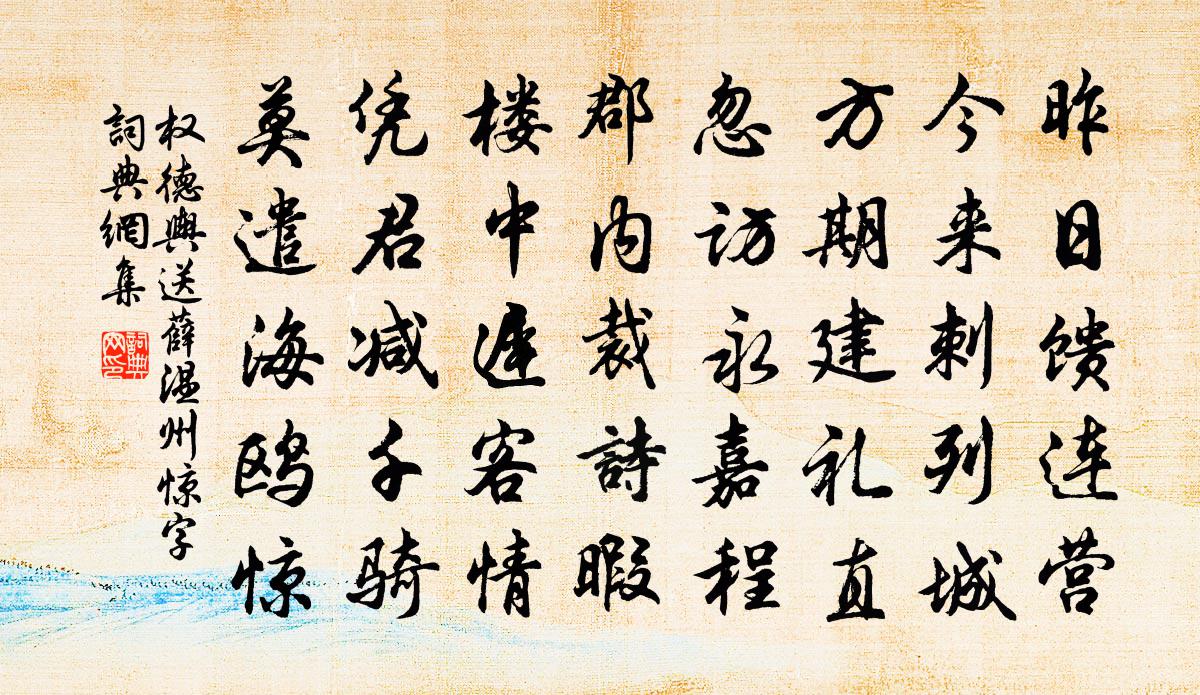 昨日馈连营
今来刺列城
方期建礼直
忽访永嘉程
郡内裁詩暇
楼中遲客情
凭君减千骑
莫遣海鸥惊
权德輿送薛温州惊字
詞典網集
詞典文印